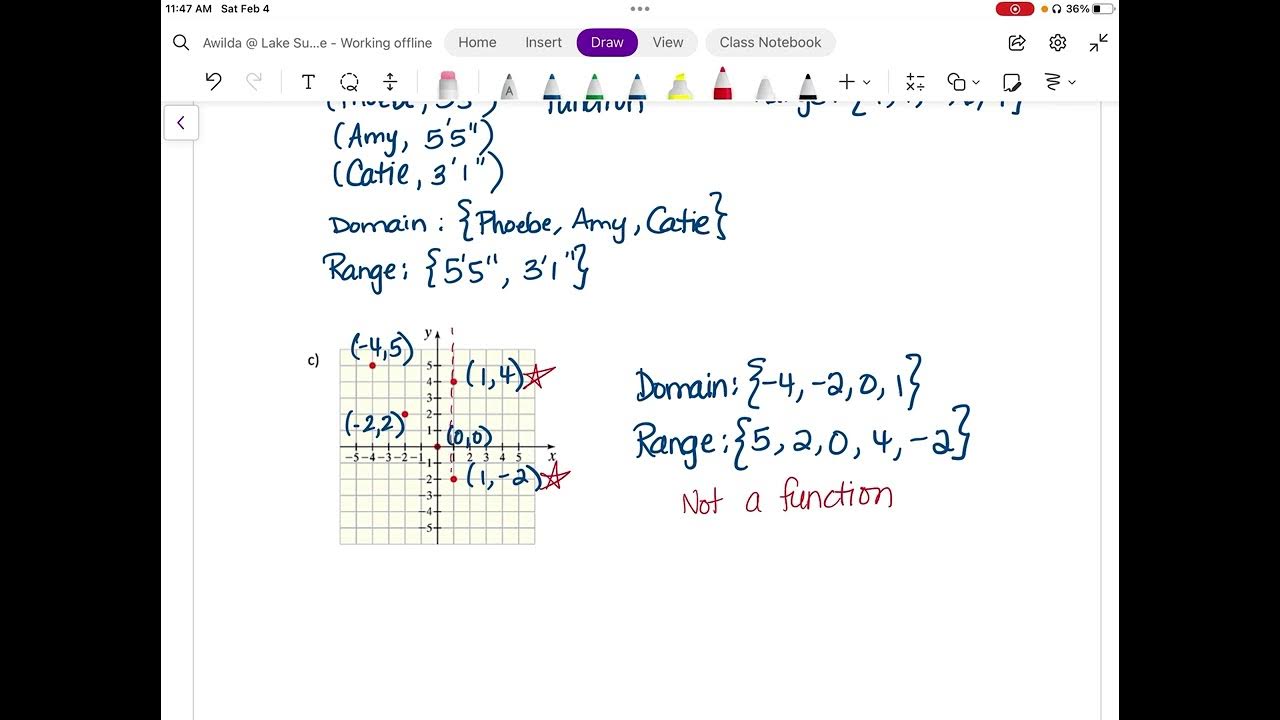 11:47 AM Sat Feb 4
36%
Awilda @ Lake Su...e - Working offline
Home Insert Draw View Class Notebook
T A
function
(Amy, 5'5")
(Catie, 3'1")
Domain : {Phoebe, Amy, Catie}
Range: {5'5", 3'1"}
c)
y
(-4,5)
(1,4)
(-2,2)
(0,0)
(1,-2)
x
5
4
3
2
1
-5 -4 -3 -2 -1 2 3 4 5
-1
-2
-3
-4
-5
Domain: {-4, -2, 0, 1}
Range: {5, 2, 0, 4, -2}
Not a function